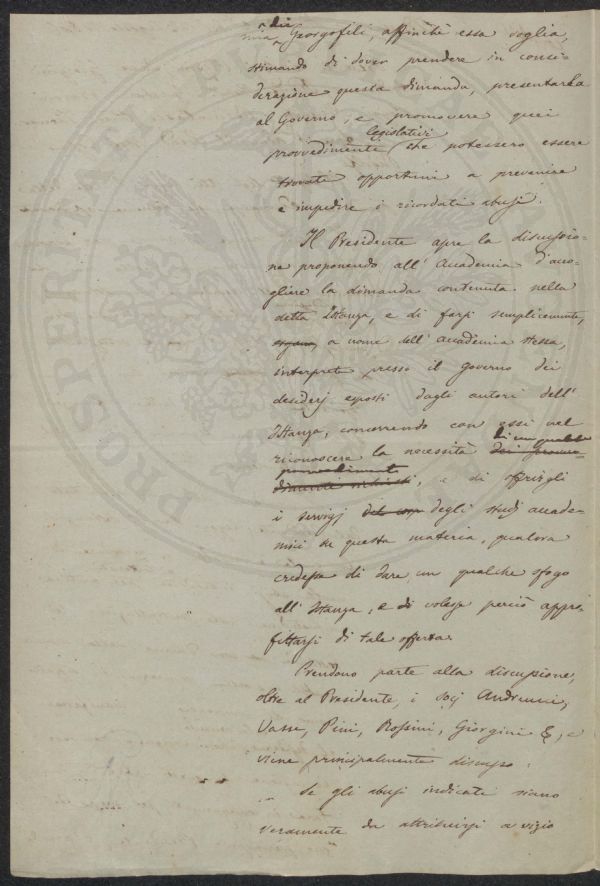 dei
mia Georgofili, affinchè essa voglia,
stimando di dover prendere in consi-
derazione questa dimanda, presentarla
al Governo, e promovere quei
legislativi
provvedimenti che potessero essere
trovati opportuni a prevenire
e impedire i ricordati abusi.
Il Presidente apre la discussio-
ne proponendo all' Accademia d'acco-
gliere la dimanda contenuta nella
detta Istanza, e di farsi semplicemente,
a nome dell' Accademia stessa,
interprete presso il Governo dei
desiderj esposti dagli autori dell'
Istanza, concorrendo con essi nel
di un qualche
riconoscere la necessità
provvedimento
, e di offrirgli
i servigj degli studj accade-
mici su questa materia, qualora
credesse di dare un qualche sfogo
all' Istanza, e di volesse perciò appro-
fittarsi di tale offerta.
Prendono parte alla discussione,
oltre al Presidente, i Socj Andreucci,
Vasse, Pini, Rossini, Giorgini &, e
viene principalmente discusso.
Se gli abusi indicati siano
veramente da attribuirsi a vizio
PROSPERITATI